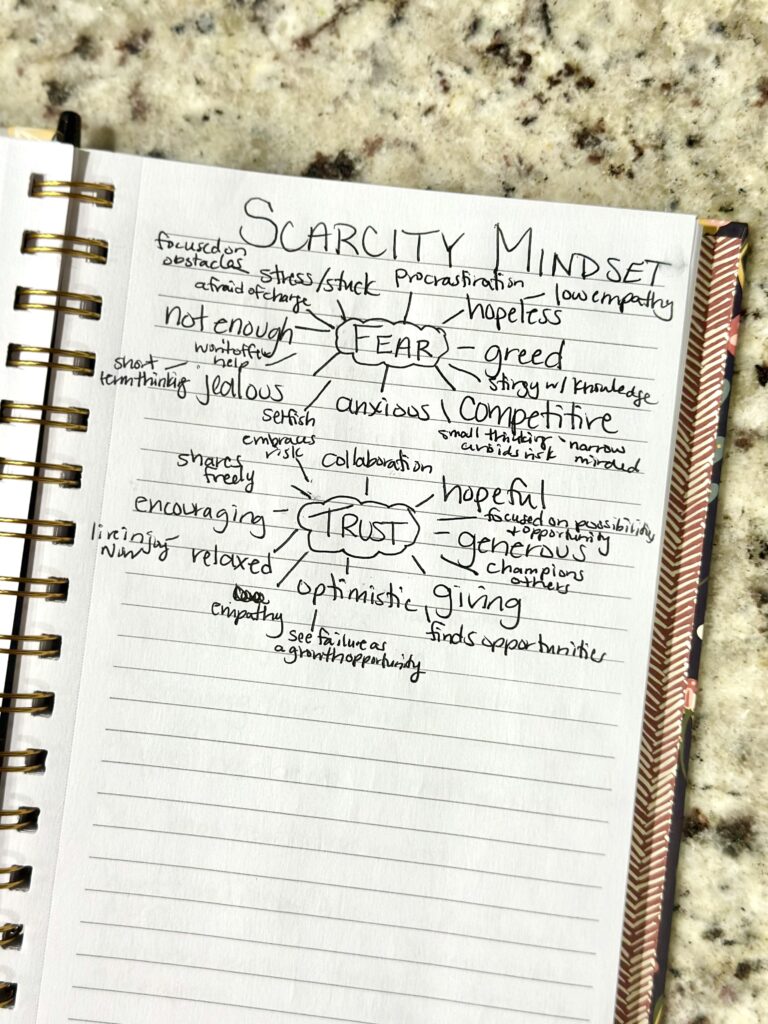 SCARCITY MINDSET
focused on
obstacles
stress/stuck
Procrastination
low empathy
afraid of change
hopeless
not enough
FEAR
greed
won't offer
help
short
term thinking
jealous
stingy w/ knowledge
selfish
anxious
competitive
small thinking
avoids risk
narrow
minded
embraces
risk
collaboration
shares
freely
hopeful
encouraging
TRUST
focused on possibility
+ opportunity
generous
live in joy
Now
relaxed
champions
others
empathy
optimistic
giving
finds opportunities
see failure as
a growth opportunity